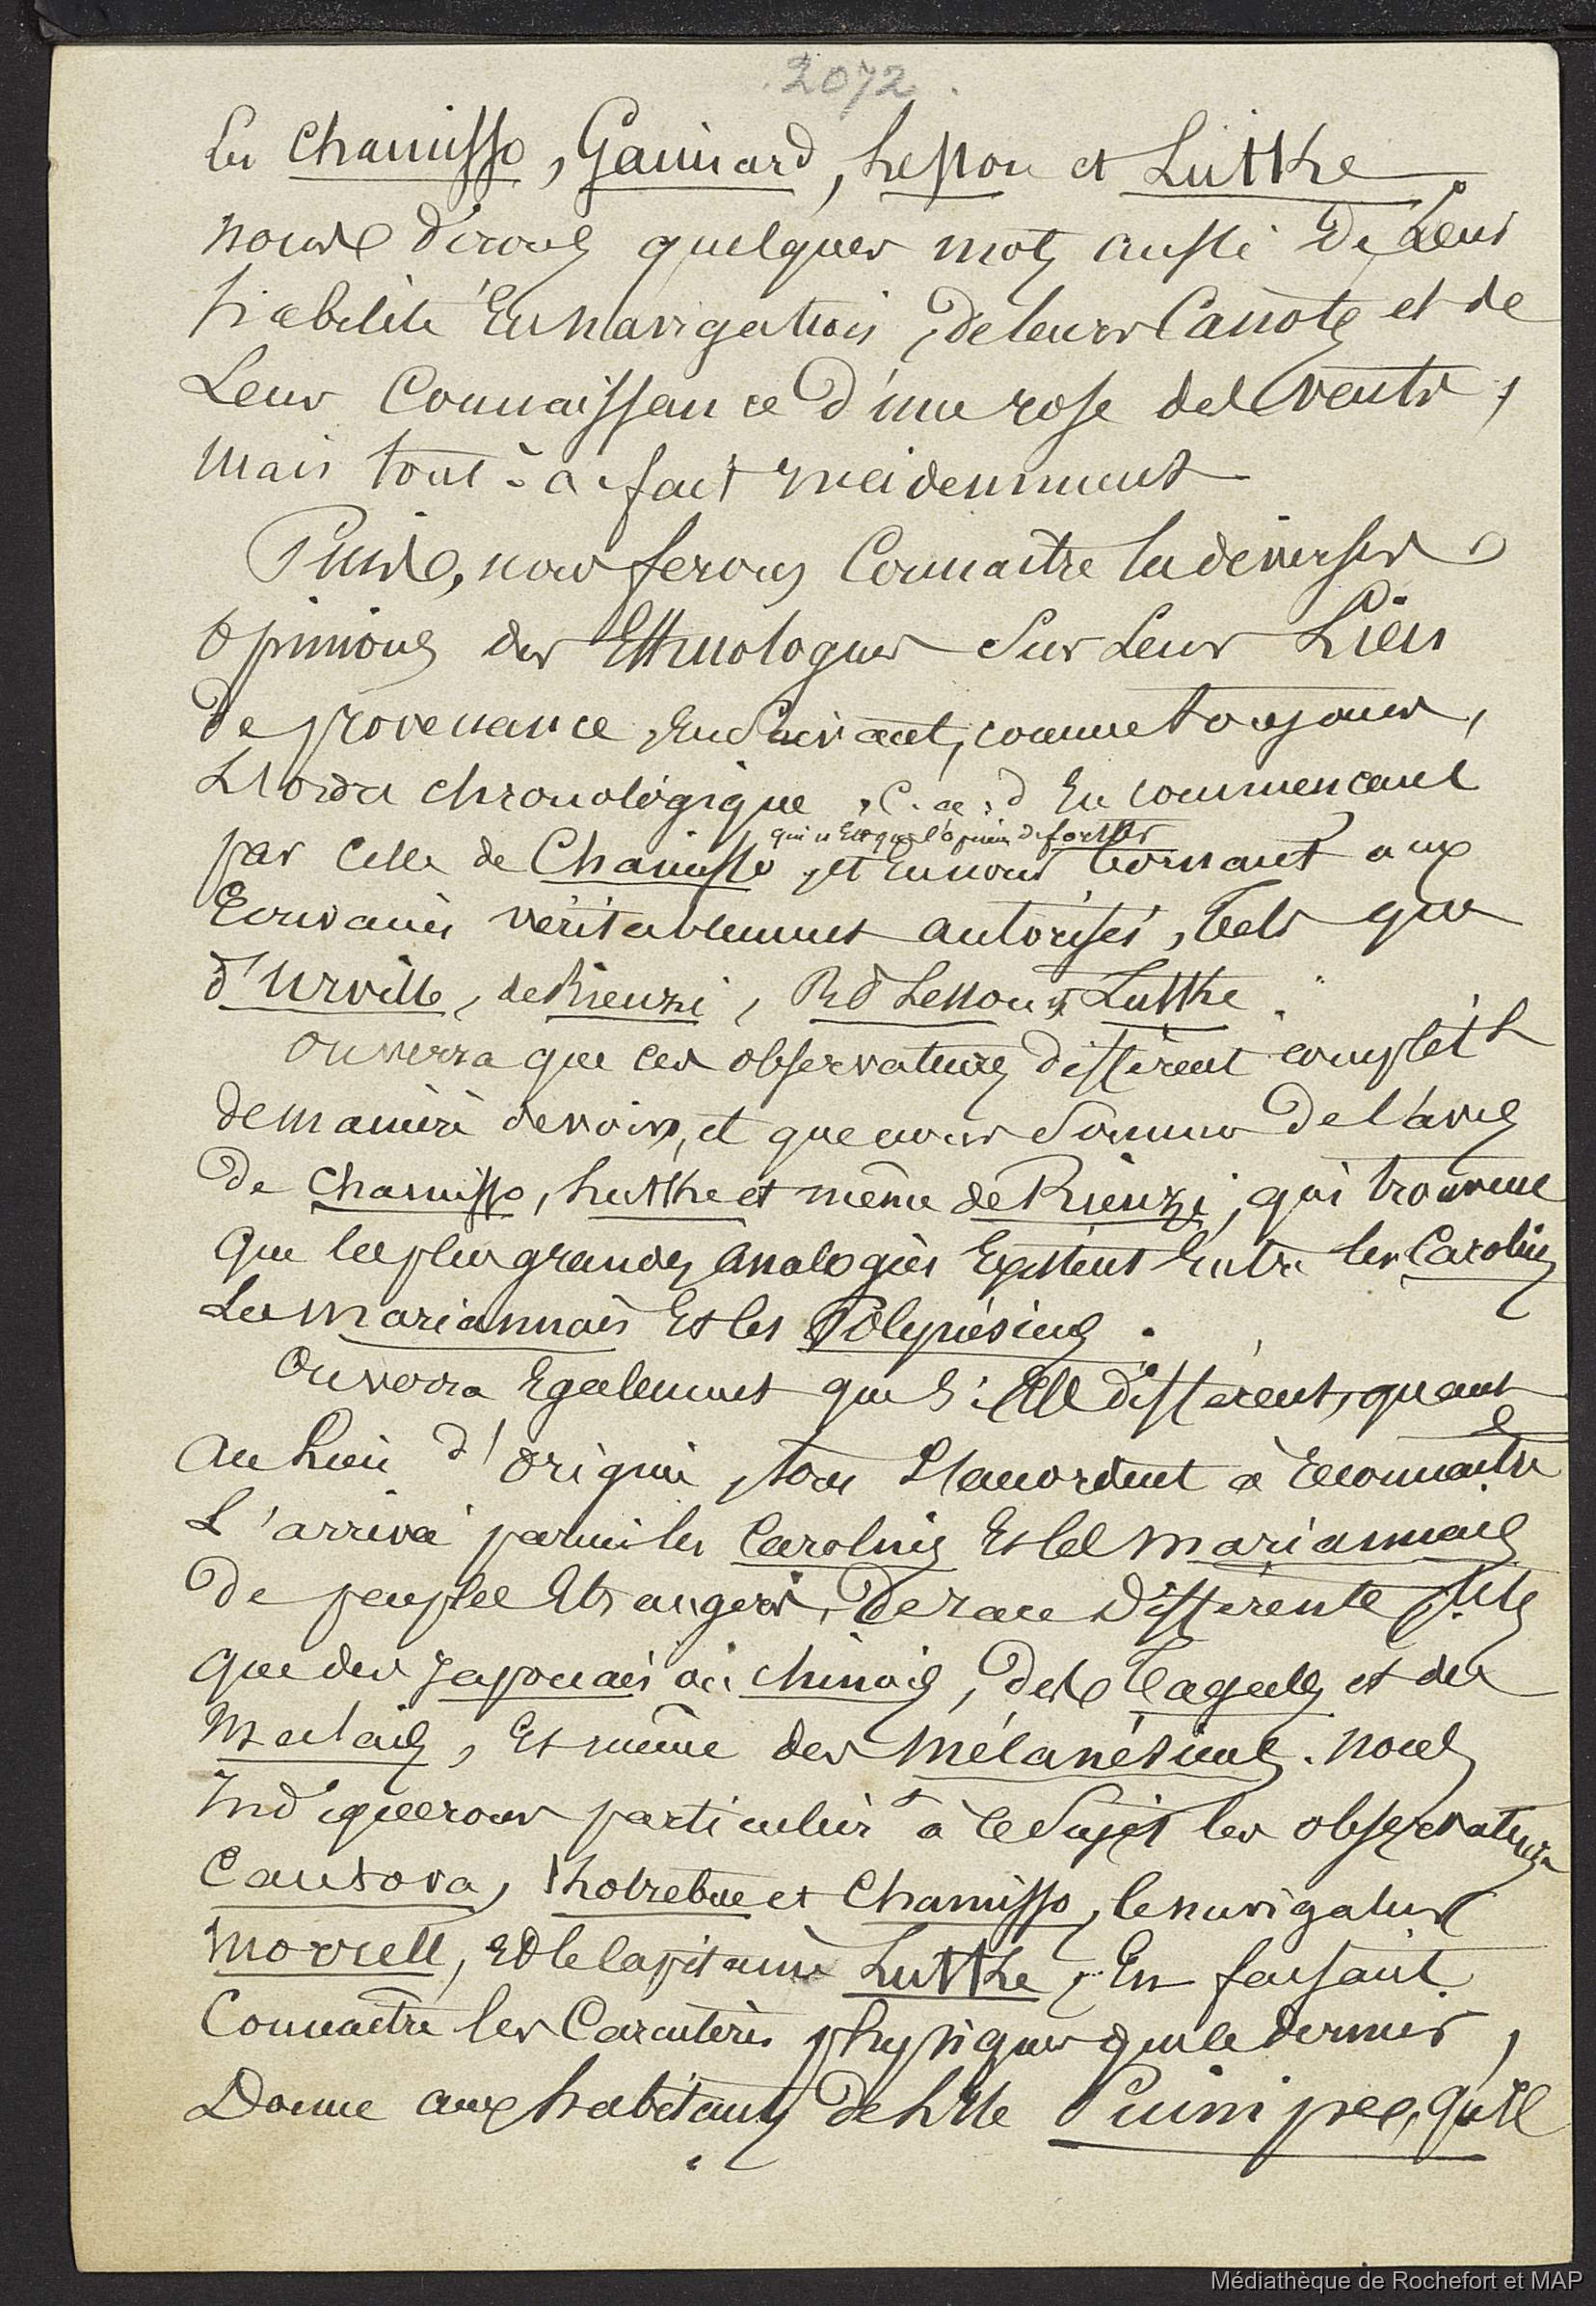 2072.
les Chamisso, Gaimard, Lesson et Lutthe.
nous dirons quelques mots aussi de Leur
habileté En navigation, de leurs Canots et de
Leur Connaissance d'une rose des vents,
mais tout-à-fait incidemment
Puis, nous ferons Connaitre les diverses
opinions des Ethnologues Sur Leur Lieu
de provenance, En Suivant, comme toujours,
L'ordre chronologique, C. a. d En commencant
qui n'Est que l'opinion de forster
par Celle de Chamisso, et En nous bornant aux
Ecrivains véritablement autorisés, tels que
d'Urville, de Rienzi, Rd Lesson et Lutthe.
On verra que ces observateurs diffèrent complètt
de manière de voir, et que nous Sommes De l'avis
De Chamisso, Lutthe et même de Rienzi, qui trouvent
Que les plus grandes Analogies Existent Entre les Carolins
Les Mariannais Et les Polynésiens.
On verra Egalement que S'ils diffèrent, quant
au Lieu d'origine, tous S'accordent à reconnaitre
L'arrivée parmi les Carolins Et les Mariannais
De peuples Etrangers, De race Différente, tels
Que des Japonais ou Chinois, des Tagals et des
Malais, Et même des Mélanésiens. Nous
Indiquerons particulièrt à ce Sujet les observateurs
Cantova, Kotzebue et Chamisso, le navigateur
Morrell, Et le Capitaine Lutthe, En faisant
Connaitre les Caractères physiques que le dernier,
Donne aux habitants de L'Ile Puinipec, qu'il